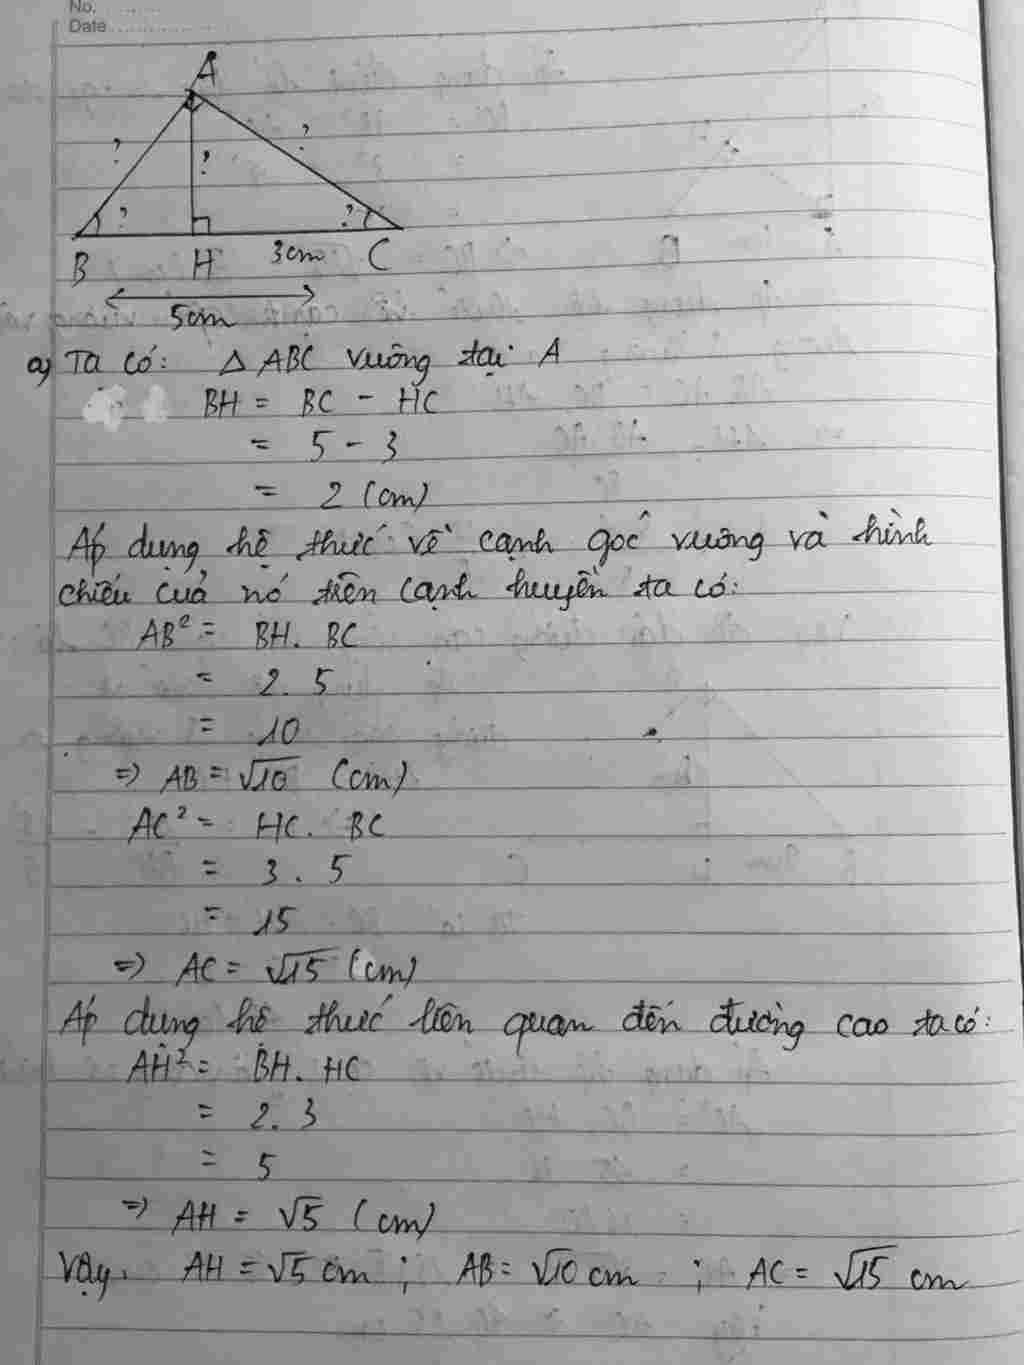 No.
Date
A
?
?
?
?
?
B
H
3cm
C
5cm
a) Ta có: △ ABC vuông tại A
BH = BC - HC
= 5 - 3
= 2 (cm)
Áp dụng hệ thức về cạnh góc vuông và hình
chiếu của nó trên cạnh huyền ta có:
AB² = BH. BC
= 2. 5
= 10
=> AB = √10 (cm)
AC² = HC. BC
= 3 . 5
= 15
=> AC = √15 (cm)
Áp dụng hệ thức liên quan đến đường cao ta có:
AH² = BH. HC
= 2. 3
= 5
=> AH = √5 (cm)
Vậy. AH = √5 cm ; AB = √10 cm ; AC = √15 cm